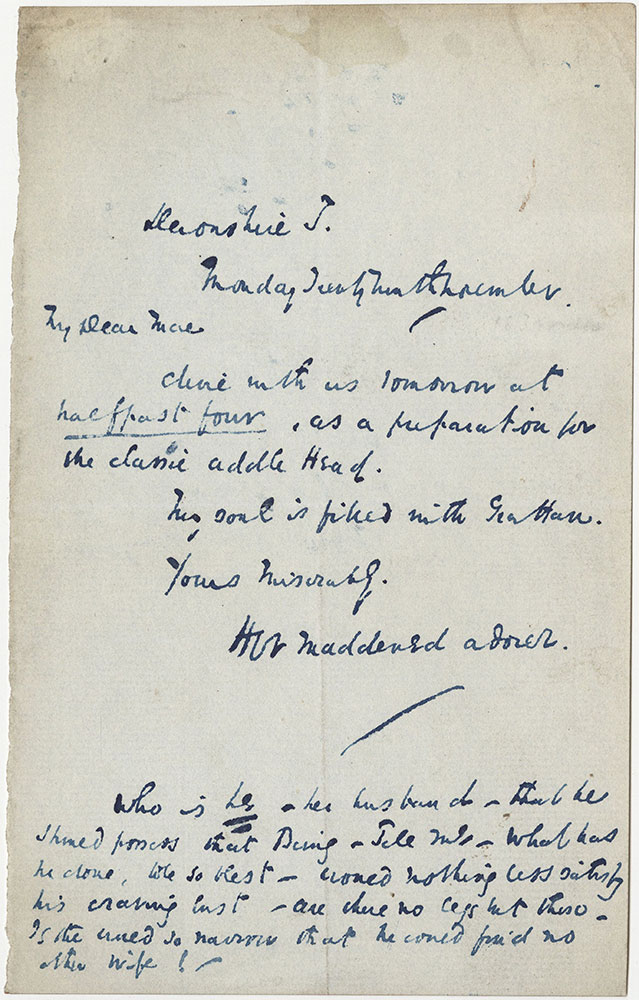 Devonshire T.
Monday Twentyninth November.
My Dear Mac
Dine with us tomorrow at
halfpast four, as a preparation for
the classic addle Head.
My soul is filled with Grattan.
Yours Miserably.
Her Maddened adorer.
Who is he – her husband – that he
should possess that Being – Tell me – What has
he done, to be so blest – would nothing less satisfy
his craving lust – are there no legs but these –
Is the world so narrow that he could find no
other wife! –